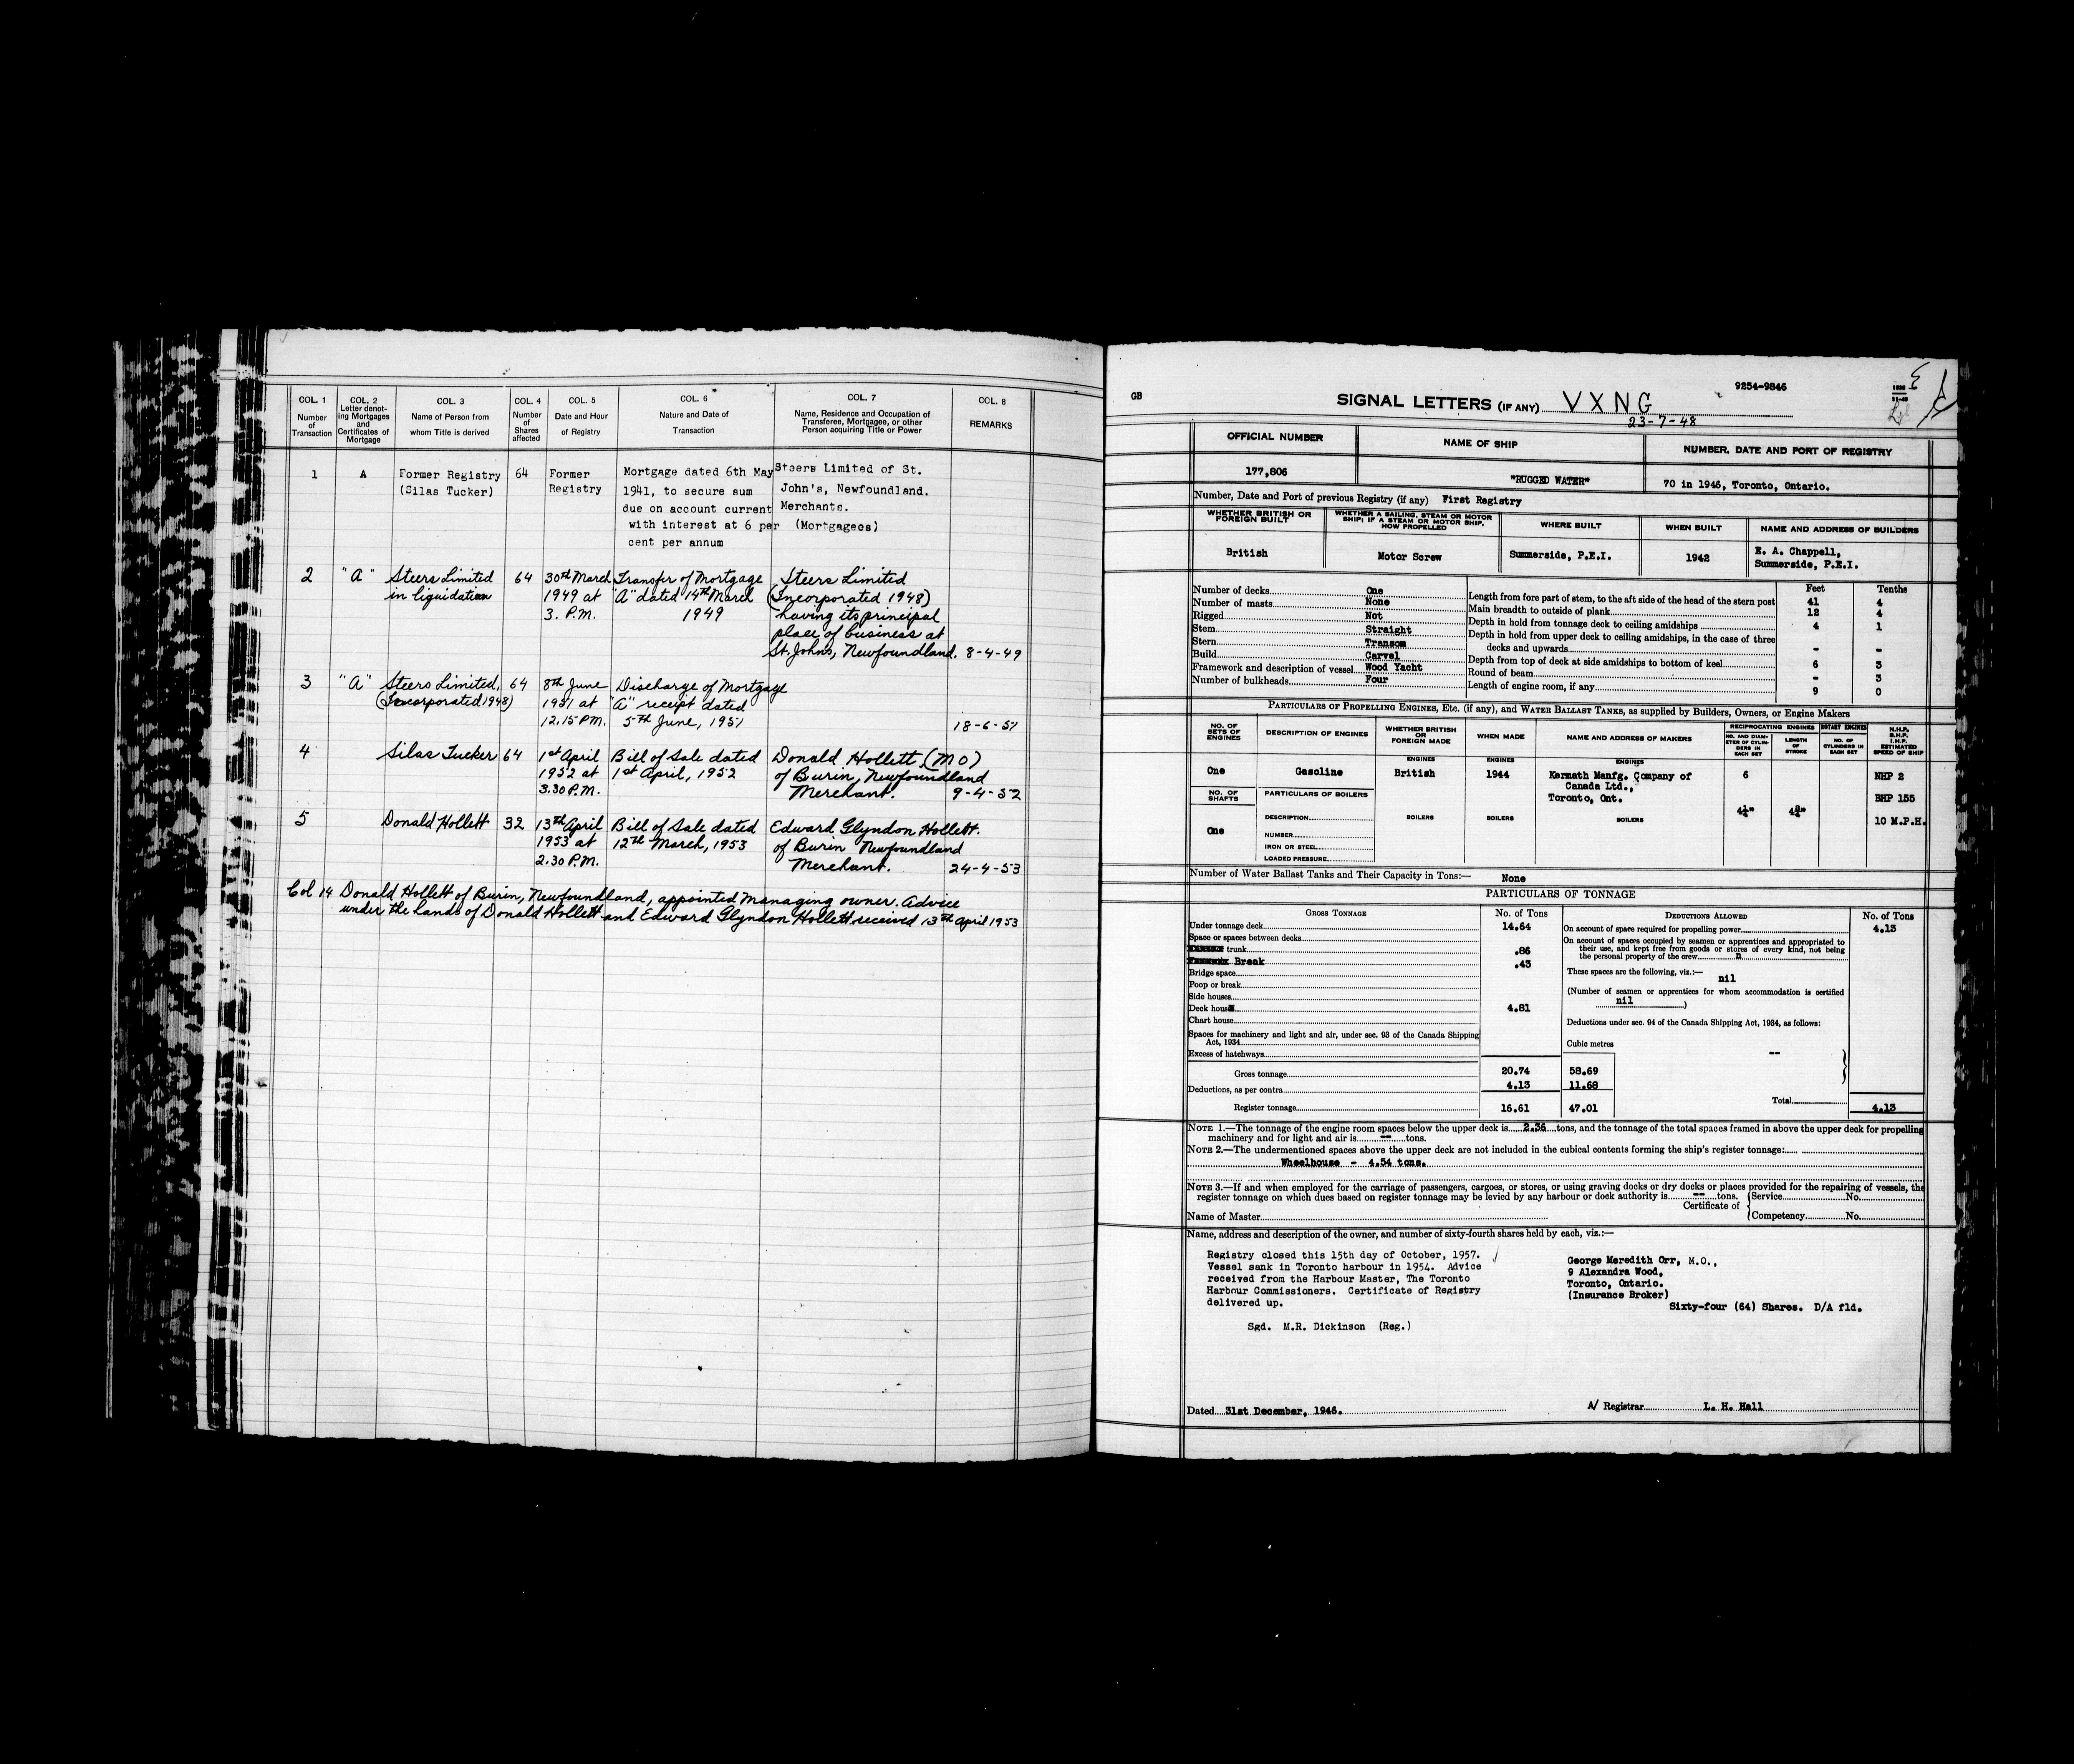 COL. 1 COL. 2 COL. 3 COL. 4 COL. 5 COL. 6 COL. 7 COL. 8
Number of Transaction
Letter denoting Mortgages and Certificates of Mortgage
Name of Person from whom Title is derived
Number of Shares affected
Date and Hour of Registry
Nature and Date of Transaction
Name, Residence and Occupation of Transferee, Mortgagee, or other Person acquiring Title or Power
REMARKS
1 A Former Registry 64 Former Mortgage dated 6th May Steers Limited of St.
(Silas Tucker) Registry 1941, to secure sum John's, Newfoundland.
due on account current Merchants.
with interest at 6 per (Mortgagees)
cent per annum
2 "A" Steers Limited 64 30th March Transfer of Mortgage Steers Limited
in liquidation 1949 at "A" dated 14th March (Incorporated 1948)
3. P.M. 1949 having its principal
place of business at
St. Johns, Newfoundland. 8-4-49
3 "A" Steers Limited, 64 8th June Discharge of Mortgage
(Incorporated 1948) 1951 at "A" receipt dated
12.15 P.M. 5th June, 1951 18-6-51
4 Silas Tucker 64 1st April Bill of Sale dated Donald Hollett (MO)
1952 at 1st April, 1952 of Burin, Newfoundland
3.30 P.M. Merchant. 9-4-52
5 Donald Hollett 32 13th April Bill of Sale dated Edward Glyndon Hollett.
1953 at 12th March, 1953 of Burin Newfoundland
2.30 P.M. Merchant. 24-4-53
Col 14 Donald Hollett of Burin, Newfoundland, appointed managing owner. Advice
under the hands of Donald Hollett and Edward Glyndon Hollett received 13th April 1953
9254-9846
GB
SIGNAL LETTERS (IF ANY) VXNG
23-7-48
OFFICIAL NUMBER NAME OF SHIP NUMBER, DATE AND PORT OF REGISTRY
177,806 "RUGGED WATER" 70 in 1946, Toronto, Ontario.
Number, Date and Port of previous Registry (if any) First Registry
WHETHER BRITISH OR FOREIGN BUILT
WHETHER A SAILING, STEAM OR MOTOR SHIP; IF A STEAM OR MOTOR SHIP, HOW PROPELLED
WHERE BUILT
WHEN BUILT
NAME AND ADDRESS OF BUILDERS
British Motor Screw Summerside, P.E.I. 1942 E. A. Chappell,
Summerside, P.E.I.
Feet Tenths
Number of decks One
Number of masts None
Rigged Not
Stem Straight
Stern Transom
Build Carvel
Framework and description of vessel Wood Yacht
Number of bulkheads Four
Length from fore part of stem, to the aft side of the head of the stern post 41 4
Main breadth to outside of plank 12 4
Depth in hold from tonnage deck to ceiling amidships 4 1
Depth in hold from upper deck to ceiling amidships, in the case of three
decks and upwards - -
Depth from top of deck at side amidships to bottom of keel 6 3
Round of beam - 3
Length of engine room, if any 9 0
PARTICULARS OF PROPELLING ENGINES, ETC. (if any), and WATER BALLAST TANKS, as supplied by Builders, Owners, or Engine Makers
NO. OF SETS OF ENGINES
DESCRIPTION OF ENGINES
WHETHER BRITISH OR FOREIGN MADE
WHEN MADE
NAME AND ADDRESS OF MAKERS
RECIPROCATING ENGINES
ROTARY ENGINES
NO. AND DIAMETER OF CYLINDERS IN EACH SET
LENGTH OF STROKE
NO. OF CYLINDERS IN EACH SET
N.H.P. B.H.P. I.H.P. ESTIMATED SPEED OF SHIP
ENGINES ENGINES ENGINES
One Gasoline British 1944 Kermath Manfg. Company of 6 NHP 2
Canada Ltd.,
Toronto, Ont. BHP 155
NO. OF SHAFTS
PARTICULARS OF BOILERS
One
DESCRIPTION
BOILERS BOILERS BOILERS 10 M.P.H.
NUMBER
IRON OR STEEL
LOADED PRESSURE
Number of Water Ballast Tanks and Their Capacity in Tons:— None
PARTICULARS OF TONNAGE
GROSS TONNAGE No. of Tons DEDUCTIONS ALLOWED No. of Tons
Under tonnage deck 14.64
Space or spaces between decks
trunk .86
Break .43
Bridge space
Poop or break
Side houses
Deck house 4.81
Chart house
Spaces for machinery and light and air, under sec. 93 of the Canada Shipping
Act, 1934
Excess of hatchways
Gross tonnage 20.74 58.69
Deductions, as per contra 4.13 11.68
Register tonnage 16.61 47.01
On account of space required for propelling power 4.13
On account of spaces occupied by seamen or apprentices and appropriated to
their use, and kept free from goods or stores of every kind, not being
the personal property of the crew
These spaces are the following, viz.:—
nil
(Number of seamen or apprentices for whom accommodation is certified
nil )
Deductions under sec. 94 of the Canada Shipping Act, 1934, as follows:
Cubic metres
--
Total 4.13
NOTE 1.—The tonnage of the engine room spaces below the upper deck is 2.36 tons, and the tonnage of the total spaces framed in above the upper deck for propelling
machinery and for light and air is -- tons.
NOTE 2.—The undermentioned spaces above the upper deck are not included in the cubical contents forming the ship's register tonnage:
Wheelhouse - 4.54 tons.
NOTE 3.—If and when employed for the carriage of passengers, cargoes, or stores, or using graving docks or dry docks or places provided for the repairing of vessels, the
register tonnage on which dues based on register tonnage may be levied by any harbour or dock authority is -- tons.
Certificate of Service No.
Competency No.
Name of Master
Name, address and description of the owner, and number of sixty-fourth shares held by each, viz.:—
Registry closed this 15th day of October, 1957.
Vessel sank in Toronto harbour in 1954. Advice
received from the Harbour Master, The Toronto
Harbour Commissioners. Certificate of Registry
delivered up.
Sgd. M.R. Dickinson (Reg.)
George Meredith Orr, M.O.,
9 Alexandra Wood,
Toronto, Ontario.
(Insurance Broker)
Sixty-four (64) Shares. D/A fld.
Dated 31st December, 1946. A/ Registrar L. H. Hall